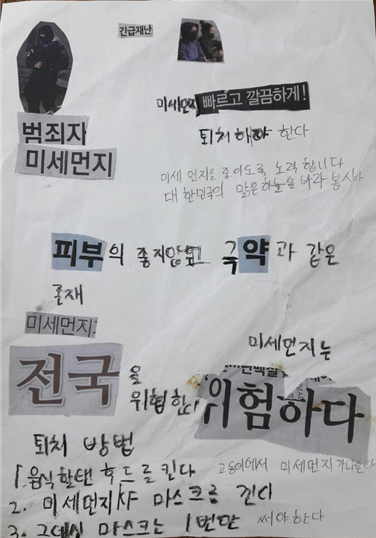 긴급재난
미세먼지 빠르고 깔끔하게!
범죄자
미세먼지
퇴치해야 한다
미세먼지를 줄이도록 노력합니다
대한민국의 맑은하늘을 바라 봅시다
피부의 좋지않고 극약과 같은
존재
미세먼지
전국을
위협한다
미세먼지는
위험하다
퇴치 방법
1. 음식할땐 후드를 킨다
고등어에서 미세먼지가나온다
2. 미세먼지 마스크를 낀다
3. 그대신 마스크는 1번만 써야한다